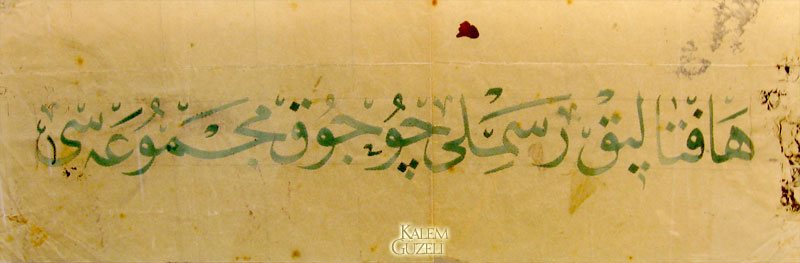 هافتالیق رسملی چوجوق مجموعه‌سی
KALEM
GÜZELİ